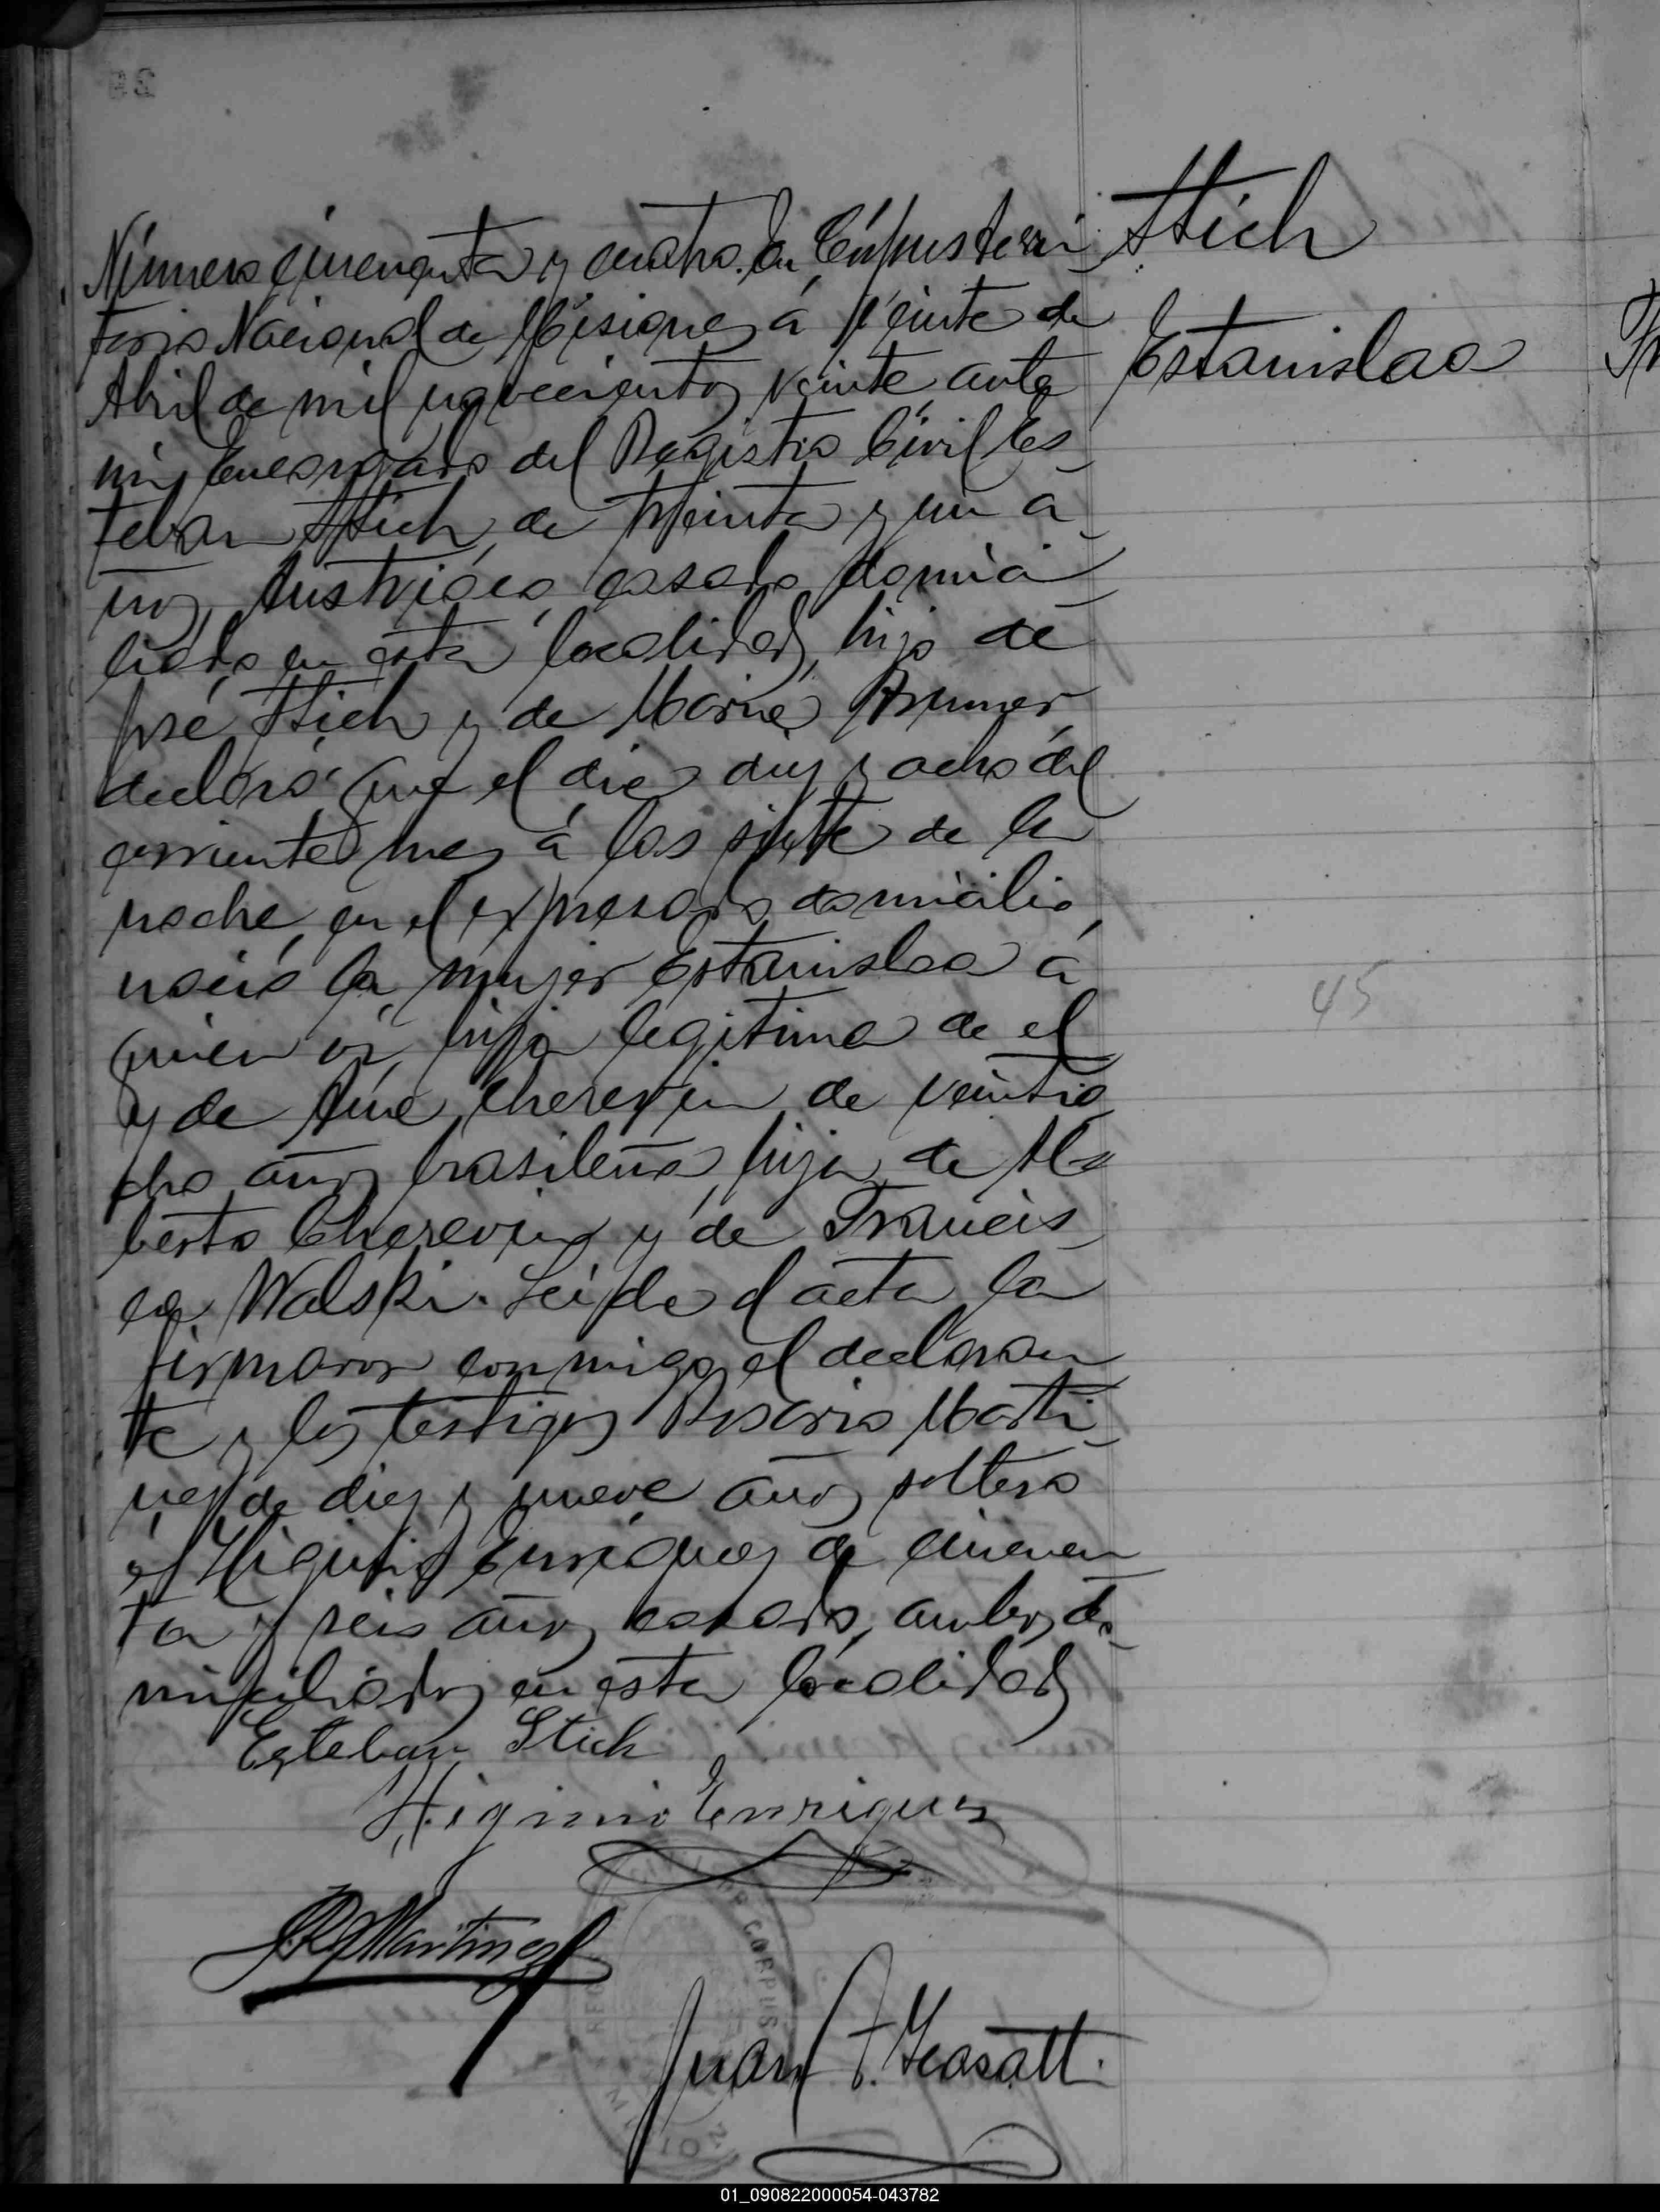 Stich
Estanislaa
Número cincuenta y cuatro. En Corpus Terri
torio Nacional de Misiones á veinte de
Abril de mil novecientos veinte, ante
mi, Encargado del Registro Civil Es
teban Stich, de treinta y un a
ños, Austriaco, casado, domici
liado en esta localidad, hijo de
José Stich y de Maria Brumer
declaró que el dia diez y ocho del
corriente mes á las siete de la
noche, en el expresado domicilio,
nació la mujer Estanislaa á
quien vi, hija legitima de el
y de Ana Cherevin, de veintio
cho años, brasileña, hija de Al
berto Cherevin y de Francis
ca Walski. Leida el acta la
firmaron conmigo el declaran
te y los testigos Rosario Marti
nez, de diez y nueve años, soltero
é Higinio Enriquez de cincuen
ta y seis años, casado, ambos do
miciliados en esta localidad
45
Esteban Stich
Higinio Enriquez
R. Martinez
CORPUS
Juan F.
01_090822000054-043782